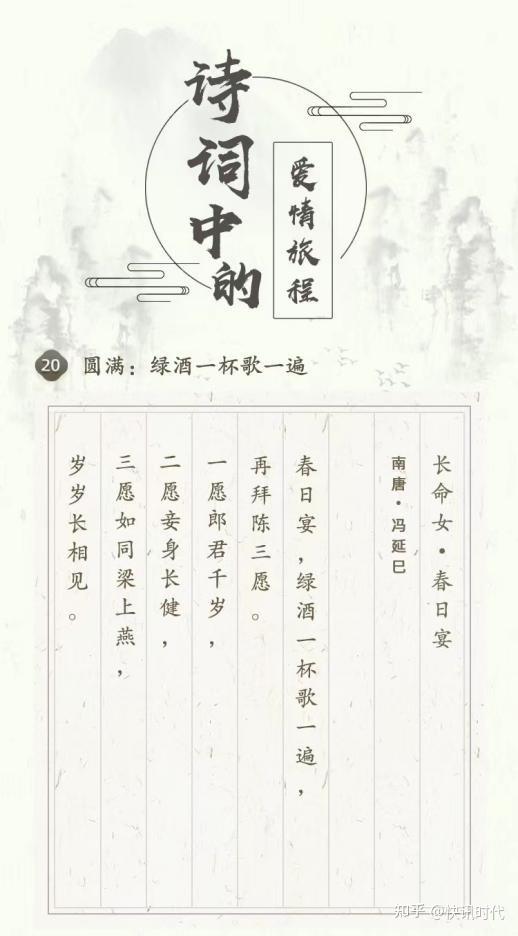 诗词中的
爱情旅程
20 圆满：绿酒一杯歌一遍
长命女·春日宴
南唐·冯延巳
春日宴，绿酒一杯歌一遍，
再拜陈三愿。
一愿郎君千岁，
二愿妾身长健，
三愿如同梁上燕，
岁岁长相见。
知乎 @快讯时代